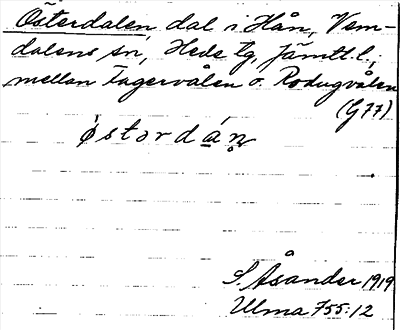 Österdalen, dal i Hån, Vem-
dalens sn, Hede tg, Jämtl. l.;
mellan Fagervålen o. Rodugvålen
(G77)
østərdán̥
S. Åsander 1919
Ulma 755:12